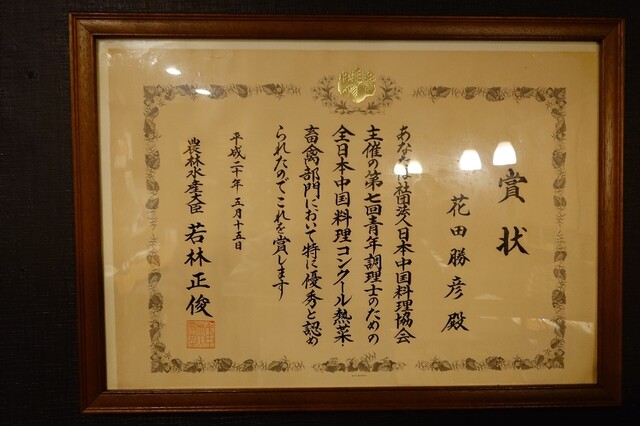 賞状
花田勝彦殿
あなたは社団法人日本中国料理協会
主催の第七回青年調理士のための
全日本中国料理コンクール熱菜・
畜禽部門において特に優秀と認め
られたのでこれを賞します
平成二十年五月十五日
農林水産大臣 若林正俊